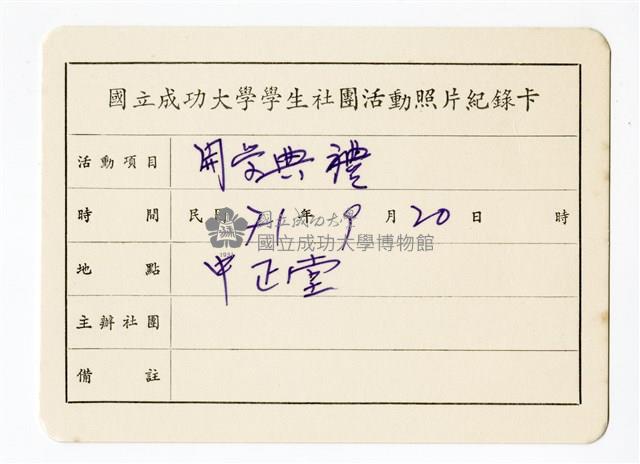 國立成功大學學生社團活動照片紀錄卡
活動項目 開学典禮
時間 民國71年9月20日 時
國立成功大學
國立成功大學博物館
地點 中正堂
主辦社團
備註